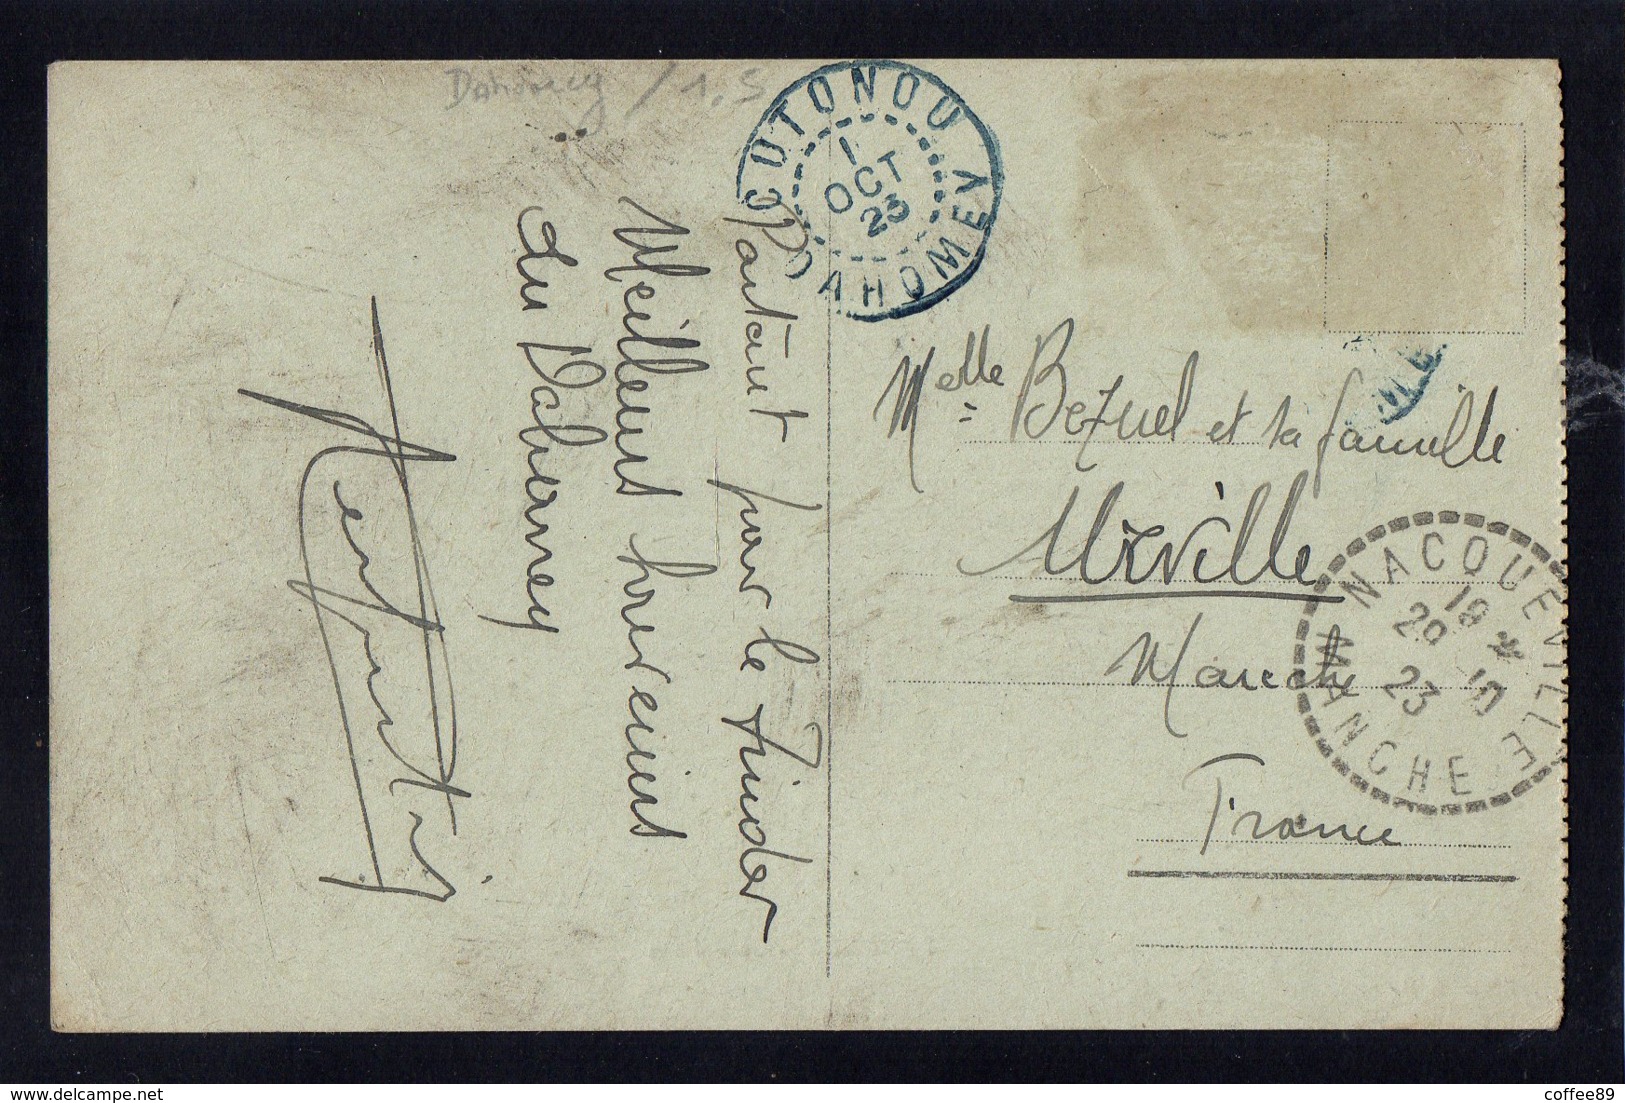 Dahomey / 1.5
COTONOU
1
OCT
23
DAHOMEY
Partant pour le Zinder
Meilleurs souvenirs
du Dahomey
Melle Bezuel et sa famille
Manche
France
NACQUEVILLE
18 *
29 -10
23
MANCHE
delcampe.net
coffee89